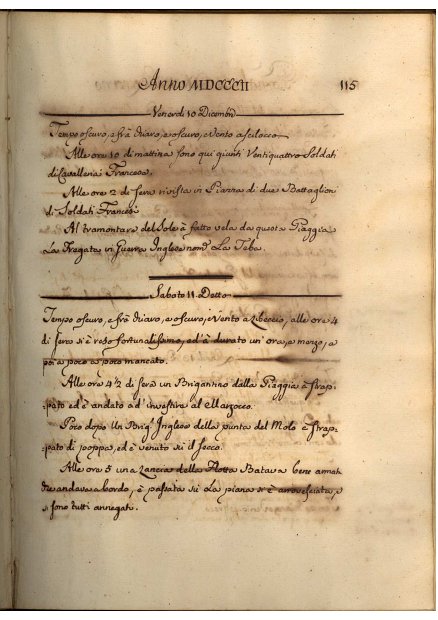 Anno MDCCCII
115
Venerdì 10 Dicembre
Tempo oscuro, e frà chiaro, e oscuro, e Vento a scilocco
Alle ore 10 di mattina sono qui giunti Ventiquattro Soldati
di Cavalleria Francesa.
Alle ore 2 di sera rivista in Piazza di due Battaglioni
di Soldati Francesi
Al tramontare del Sole è fatto vela da questa Piaggia
La Fregata in Guerra Inglese nom.ª La Teba.
Sabato 11 Detto
Tempo oscuro, e frà chiaro, e oscuro, e Vento a Libeccio, alle ore 4
di sera si è reso fortunalissimo, ed à durato un' ora, e mezzo, a
poi a poco a poco mancato.
Alle ore 4½ di sera un Brigantino dalla Piaggia è strap-
:pato ed è andato ad' investire al Marzocco.
Poco dopo Un Brig: Inglese della punta del Molo è strap-
:pato di poppa, ed è venuto sù il secco.
Alle ore 5 una Lancia della Flotta Batava bene armata
che andava a bordo, è passata sù La piana si è arrovesciata, e
si sono tutti annegati.